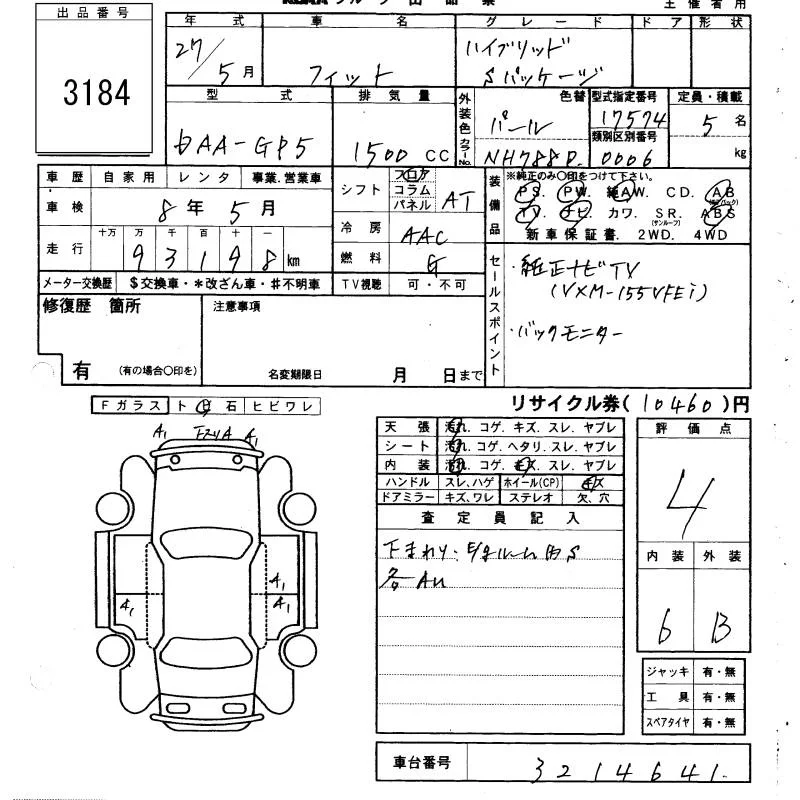 主催者用
出品番号
3184
年式 車名 グレード ドア 形状
27/5月 フィット ハイブリッド
Sパッケージ
型式 排気量 外装色 色替 型式指定番号 定員・積載
DAA-GP5 1500 CC パール 17574 5名
カラーNo. NH788P. 類別区別番号 0006 kg
車歴 自家用 レンタ 事業.営業車
車検 8年5月
走行 十万 万 千 百 十 一
93198km
メーター交換歴 $交換車・*改ざん車・♯不明車
シフト フロア コラム パネル AT
冷房 AAC
燃料 G
TV視聴 可・不可
装備品 ※純正のみ〇印をつけて下さい。
PS. PW. 純AW. CD. AB(エアバッグ)
TV. ナビ カワ. SR.(サンルーフ) ABS
新車保証書. 2WD. 4WD
セールスポイント
・純正ナビTV
(VXM-155VFEi)
・バックモニター
修復歴 箇所
有 (有の場合〇印を)
注意事項
名変期限日 月 日まで
リサイクル券(10460)円
Fガラス ト 日 石 ヒビワレ
A1 A1
A1
A1 A1
天張 汚れ. コゲ. キズ. スレ. ヤブレ
シート 汚れ. コゲ. ヘタリ. スレ. ヤブレ
内装 汚れ. コゲ. キズ. スレ. ヤブレ
ハンドル スレ、ハゲ ホイール(CP) キズ
ドアミラー キズ、ワレ ステレオ 欠、穴
査定員記入
下まわり・
評価点
4
内装 外装
6 B
ジャッキ 有・無
工具 有・無
スペアタイヤ 有・無
車台番号 3214641.